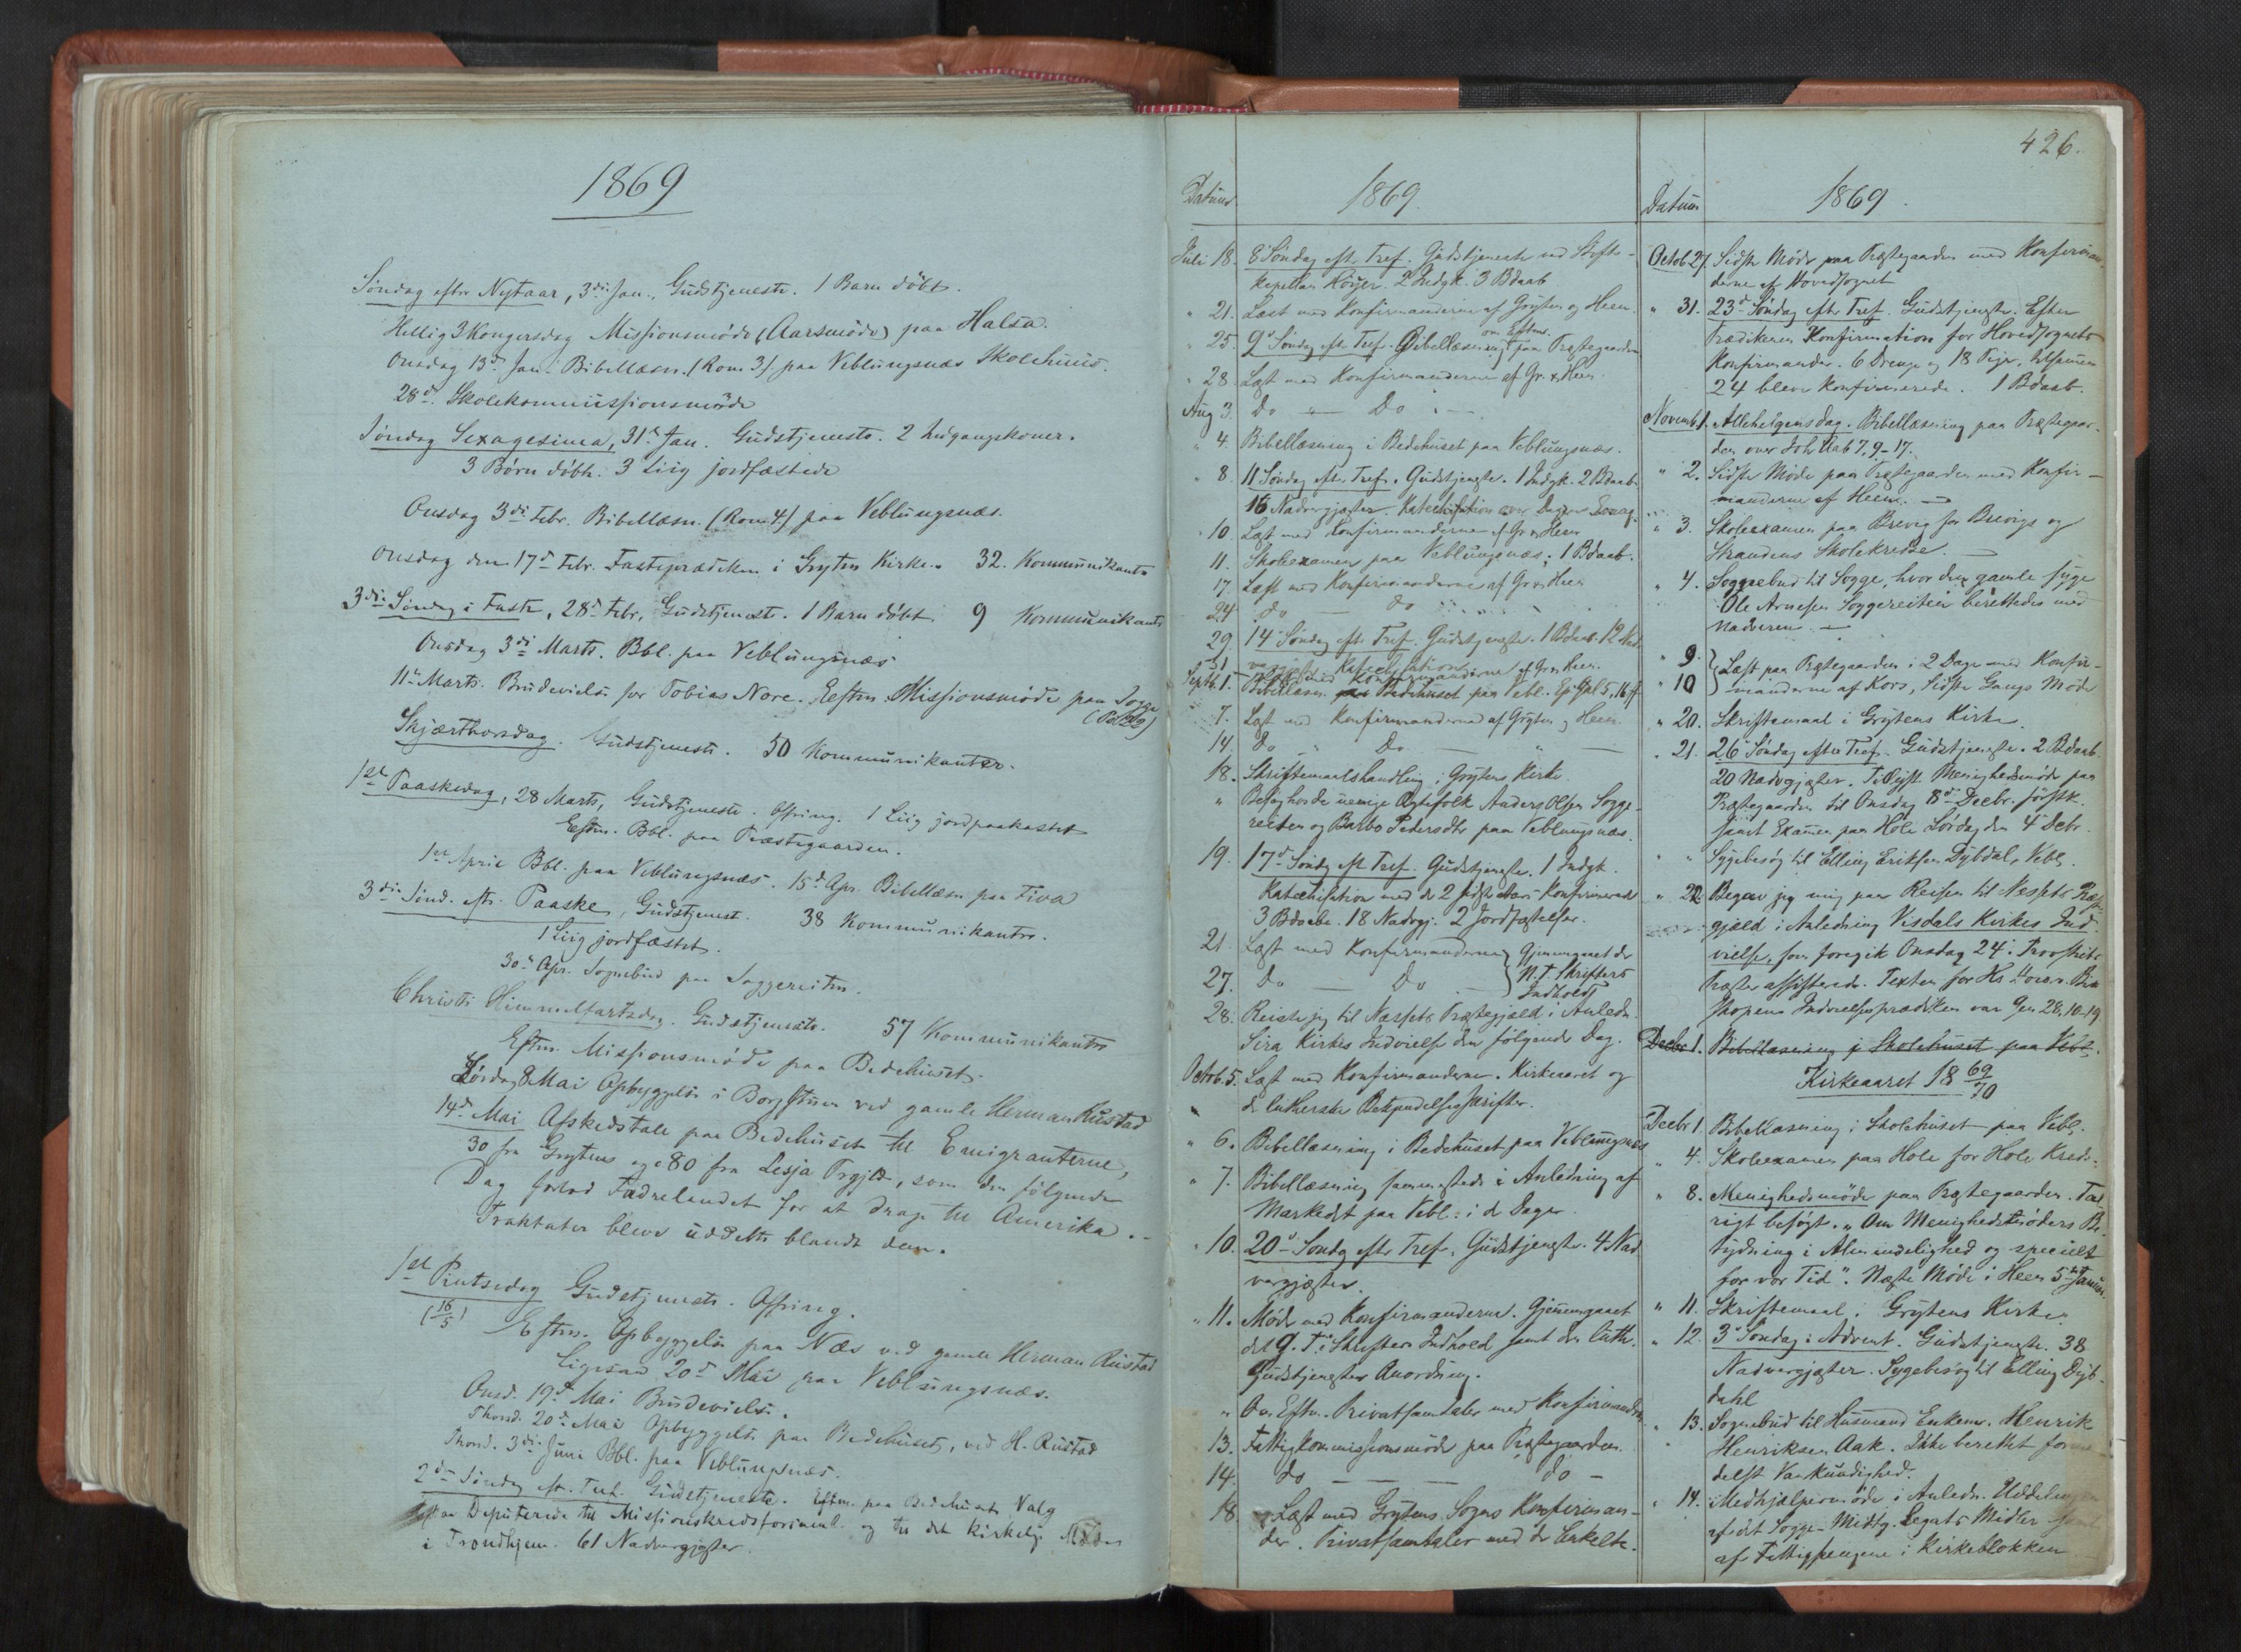 1869
Søndag efter Nytaar, 3die Jan., Gudstjeneste. 1 Barn døbt.
Hellig 3 Kongersdag Missionsmøde (Aarsmøde) paa Halsa.
Onsdag 13de Jan. Bibellæsn. (Rom. 3) paa Veblungsnæs Skolehuus.
28de. Skolekommissionsmøde
Søndag Sexagesima, 31te Jan. Gudstjeneste. 2 Indgangskoner.
3 Børn døbte. 3 Liig jordfæstede
Onsdag 3die Febr. Bibellæsn. (Rom 4) paa Veblungsnæs.
Onsdag den 17de Febr. Fasteprædiken i Gryten Kirke. 32. Kommunikanter
3die Søndag i Faste, 28de Febr. Gudstjeneste. 1 Barn døbt. 9 Kommunikanter
Onsdag 3die Marts. Bbl. paa Veblungsnæs
11te Marts. Brudevielse for Tobias Nore. Eftm. Missionsmøde paa Sogge
Skjærthorsdag. Gudstjeneste. 50 Kommunikanter.
1ste Paaskedag, 28 Marts, Gudstjeneste. Ofring. 1 Liig jordpaakastet
Eftm. Bbl. paa Præstegaarden.
1ste April Bbl. paa Veblungsnæs. 15de Apr. Bibellæsn paa Fiva
3die Sønd. eft. Paaske, Gudstjenest. 38 Kommunikantere.
1 Liig jordfæstet.
30te Apr. Sognebud paa Soggereiten.
Christi Himmelfartsdag. Gudstjeneste. 57 Kommunikanter
Eftm. Missionsmøde paa Bedehuset.
Lørdag 8 Mai Opbyggelse i Borgstuen ved gamle Herman Rustad
14de Mai Afskedstale paa Bedehuset til Emigranterne,
30 fra Grytens og 80 fra Lesja Prgjld, som den følgende
Dag forlod Fædrelandet for at drage til Amerika.
Traktater bleve uddelte blandt dem.
1ste Pintsedag Gudstjeneste. Ofring.
(16/5) Eftm. Opbyggelse paa Næs ved gamle Herman Rustad
Ligesaa 20de Mai paa Veblungsnæs.
Onsd. 19de Mai Brudevielse.
Thorsd. 20de Mai Opbyggelse paa Bedehuset, ved H. Rustad
Thorsd. 3die Juni Bbl. paa Veblungsnæs.
2den Søndag eft. Tref. Gudstjeneste. Eftm. paa Bedehuset Valg
paa Deputerede til Missionskredsforsaml. og til det kirkelige Møde
i Trondhjem. 61 Nadvergjæster.
Datum 1869.
Juli 18. 8 Søndag eft. Tref. Gudstjeneste ved Stifts-
kapellan Koyer. 2 Indgk. 3 Bdaab
" 21. Læst med Konfirmanderne af Gryten og Heen.
om Eftm.
" 25. 9de Søndag eft. Tref. Bibellæsning paa Præstegaarden
" 28 Læst med Konfirmanderne af Gr. & Heen.
Aug 3. Do — Do —
" 4. Bibellæsning i Bedehuset paa Veblungsnæs.
" 8. 11 Søndag efter Tref. Gudstjeneste. 1 Indgk. 2 Bdaab.
16 Nadvergjæster. Katechisation over Dagens Evang.
" 10. Læst med Konfirmanderne af Gr & Heen
11. Skoleexamen paa Veblungsnæs. 1 Bdaab.
17. Læst med Konfirmanderne af Gr & Heen
24. do — do
29. 14 Søndag eft. Tref. Gudstjeneste. 1 Bdaab. 12 Nad-
vergjæster. Katechisation
Septb. 1. Bibellæsn. Bedehuset paa Vebl. Ep. Gal 5, 16 ff
7. Læst med Konfirmanderne af Gryten og Heen.
14. do " Do — " —
18. Skriftemaalshandling i Grytens Kirke.
" Besøg hos de uenige Ægtefolk Anders Olsen Sogge-
reiten og Barbo Pedersdtr paa Veblungsnæs.
19. 17de Søndag eft Tref. Gudstjeneste. 1 Indgk.
Katechisation med de 2 sidste Aars Konfirmerede
3 Bdaabe. 18 Nadvgj. 2 Jordfæstelser.
21. Læst med Konfirmanderne } Gjennemgaaet de
27. Do — Do — } N. T. Skrifters
Indhold
28. Reiste jeg til Næssets Præstegjæld i Anledn.
Sira Kirkes Indvielse den følgende Dag.
Octob. 5. Læst med Konfirmanderne. Kirkeaaret og
de lutherske Bekjendelsesskrifter.
" 6. Bibellæsning i Bedehuset paa Veblungsnæs
" 7. Bibellæsning sammesteds i Anledning af
Markedet paa Vebl. i d. Dage.
" 10. 20de Søndag efter Tref. Gudstjeneste. 4 Nad-
vergjæster.
" 11. Møde med Konfirmanderne. Gjennemgaaet
det G. T. Skrifters Indhold samt den luth.
Gudstjenestes Anordning.
" Om Eftm. Privatsamtaler med Konfirmanderne.
13. Fattigkommissionsmøde paa Præstegaarden.
14. do — do —
18. Læst med Grytens Sogns Konfirman-
der. Privatsamtaler med de Enkelte.
426.
Datum 1869.
Octob 27. Sidste Møde paa Præstegaarden med Konfirman-
derne af Hovedsognet
" 31. 23de Søndag efter Tref. Gudstjeneste. Efter
Prædikenen Konfirmation for Hovedsognets
Konfirmander. 6 Drenge og 18 Piger, tilsammen
24 bleve konfirmerede. 1 Bdaab.
Novemb 1. Allehelgensdag. Bibellæsning paa Præstegaar-
den over Joh. Aab 7, 9-17.
" 2. Sidste Møde paa Præstegaarden med Konfir-
manderne af Heen. —
" 3. Skoleexamen paa Brevig for Brevigs og
Strandens Skolekredse. —
" 4. Soggnebud til Sogge, hvor den gamle syge
Ole Arnesen Soggereiten berettedes med
Nadveren. —
" 9. } Læst paa Præstegaarden i 2 Dage med Konfir-
" 10 } manderne af Kors, sidste Gangs Møde
" 20. Skriftemaal i Grytens Kirke.
" 21. 26 Søndag efter Tref. Gudstjeneste. 2 Bdaab.
20 Nadvgjæster. Tillyst Menighedsmøde paa
Præstegaarden til Onsdag 8de Decbr. førstk.
samt Examen paa Hole Lørdag den 4de Debr.
" " Sygebesøg til Elling Eriksen Dybdal, Vebl.
" 22. Begav jeg mig paa Reisen til Næssets Præste-
gjæld i Anledning Visdals Kirkes Ind-
vielse, som foregik Onsdag 24de. Provstiets
Præster assisterede. Texten for Hr. Biskopens
Indvielsesprædiken var Gen 28, 10-19
Decbr 1. Bibellæsning i Skolehuset paa Vebl.
Kirkeaaret 1869/70
Decbr 1. Bibellæsning i Skolehuset paa Vebl.
" 4. Skoleexamen paa Hole for Hole Kreds.
" 8. Menighedsmøde paa Præstegaarden. Tal-
rigt besøgt. "Om Menighedsmøders Be-
tydning i Almindelighed og specielt
for vor Tid". Næste Møde i Heen 5te Januar.
" 11. Skriftemaal i Grytens Kirke.
" 12. 3de Søndag i Advent. Gudstjeneste. 38
Nadvergjæster. Sygebesøg til Elling Dyb-
dahl
" 13. Sognebud til Husmand Enkem. Henrik
Henriksen Aak. Ikke berettet forme-
delst Vankundighed.
" 14. Medhjælpermøde i Anledn. Uddelingen
af det Sogge-Midtg. Legats Midler samt
af Fattigpengene i Kirkeblokken